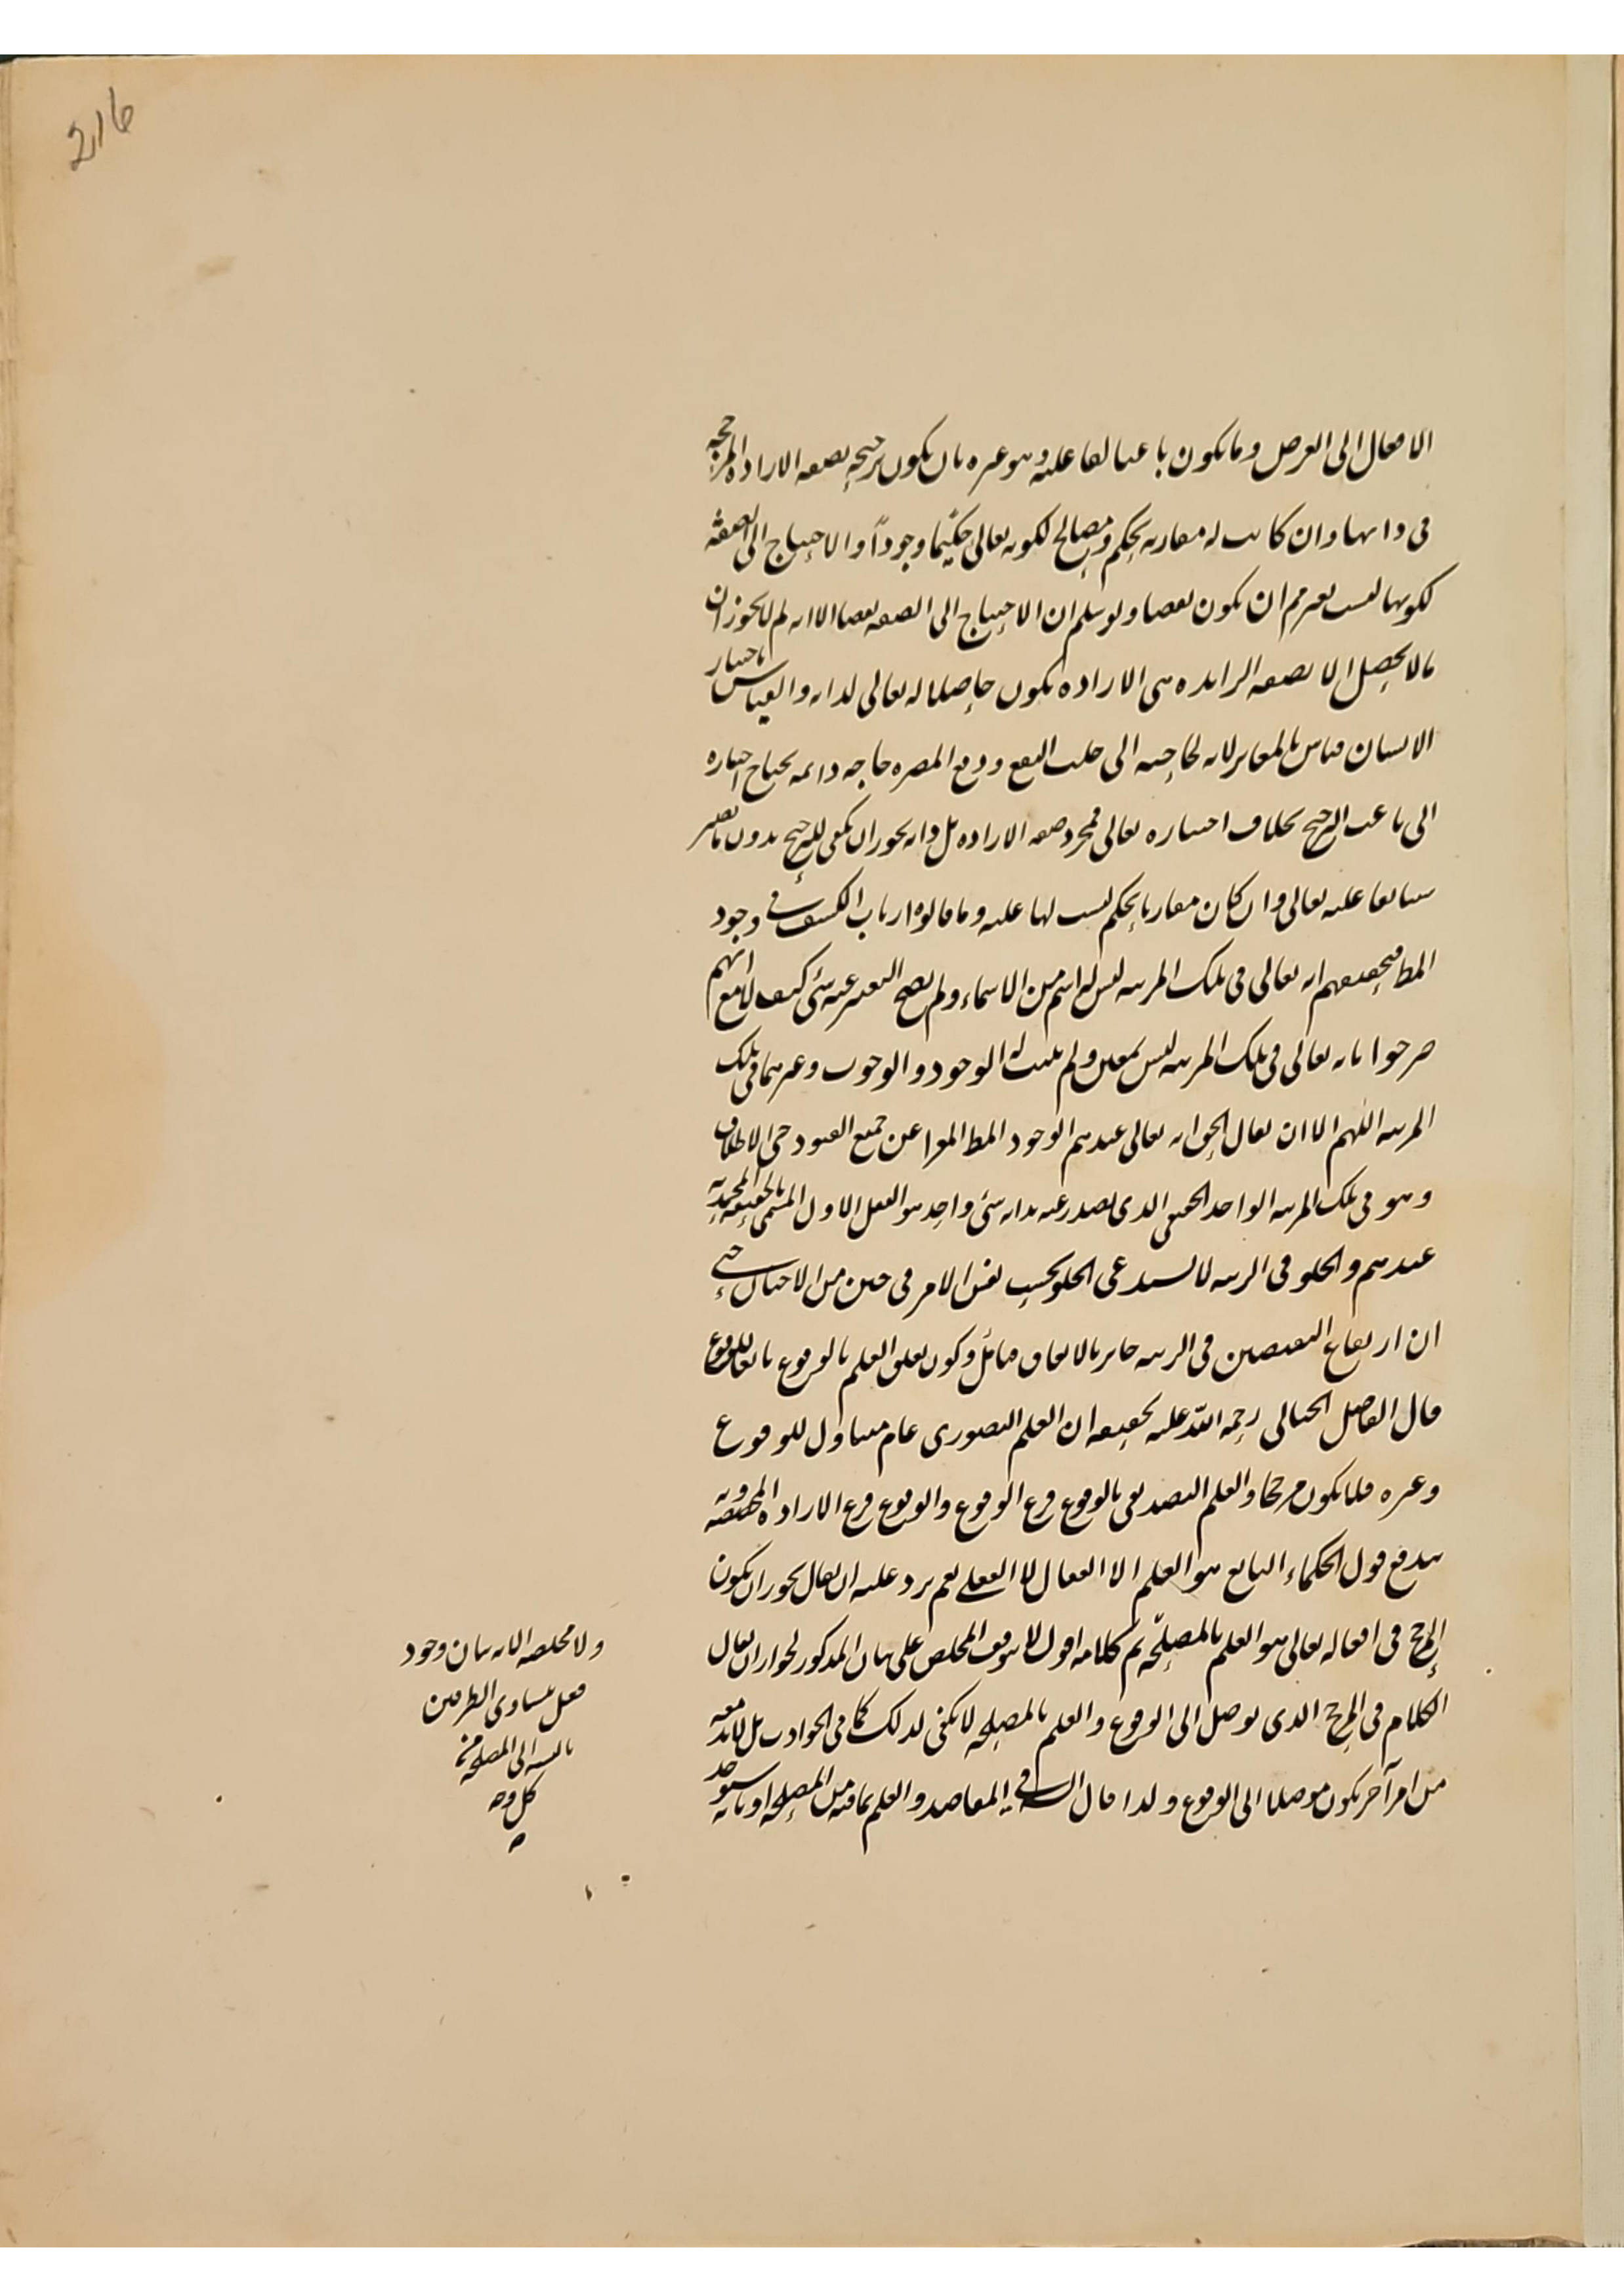 216
الافعال الى الغرض وما يكون باعثا لفاعليه وهو غيره بان يكون ترجيحه بصفة الارادة المرجحة
فى ذاتها وان كانت له مقارنة بحكم ومصالح لكونه تعالى حكيما وجودا والاحتياج الى الصفة
لكونها ليست بغير مم ان يكون نقصا ولو سلم ان الاحتياج الى الصفة نقصا الا انه لم لا يجوز ان
ما لا يحصل الا بصفة الزائدة هى الارادة يكون حاصلا له تعالى لذاته والقياس باختيار
الانسان قياس بالمغاير لانه لحاجته الى جلب النفع ودفع المضرة حاجة دائمة يحتاج اختياره
الى باعث الترجيح بخلاف اختياره تعالى فمجرد صفة الارادة بل ذاته يجوز ان يكفى للترجيح بدون تأثير
سابقا عليه تعالى وان كان مقارنا بحكم ليست لها علية وما قالوا ارباب الكشف فى وجود
المط فتحقيقهم انه تعالى فى تلك المرتبة ليس له اسم من الاسماء ولم يصح التعبير عنه شئ كيف لا مع انهم
صرحوا بانه تعالى فى تلك المرتبة ليس بمعين ولم يثبت له الوجود والوجوب وغيرهما فى تلك
المرتبة اللهم الا ان يقال الحق انه تعالى عندهم الوجود المط المعرا عن جميع القيود حتى الاطلاق
وهو فى تلك المرتبة الواحد الحقيقى الذى يصدر عنه بذاته شئ واحد هو العقل الاول المسمى بالحقيقة المحمدية
عندهم والخلو فى الرتبة لا يستدعى الخلو بحسب نفس الامر فى حين من الاحيان حتى
ان ارتفاع النقيضين فى الرتبة جائز بالاتفاق فتأمل وكون تعلق العلم بالوقوع تابعا للوقوع
قال الفاضل الخيالى رحمه الله عليه تحقيقه ان العلم التصورى عام متناول للوقوع
وغيره فلا يكون مرجحا والعلم التصديقى بالوقوع فرع الوقوع والوقوع فرع الارادة المخصصة وبه
يندفع قول الحكماء التابع هو العلم الانفعالى لا الفعلى نعم يرد عليه ان يقال يجوز ان يكون
المرجح فى افعاله تعالى هو العلم بالمصلحة تم كلامه اقول لا يتوقف المخلص على بيان المذكور لجواز ان يقال
الكلام فى المرجح الذى يوصل الى الوقوع والعلم بالمصلحة لا يكفى لذلك كما فى الحوادث بل لابد معه
من امر آخر يكون موصلا الى الوقوع ولذا قال فى المقاصد والعلم بما فيه من المصلحة او بانه سيوجد
ولا مخلص الا انه بيان وجود
فعل يتساوى الطرفين
بالنسبة الى المصلحة من
كل وجه